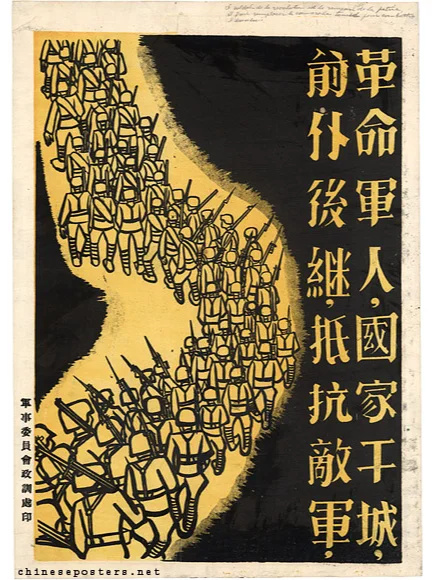 革命軍人，國家干城，
前仆後継，抵抗敵軍，
軍事委員會政訓處印
chineseposters.net